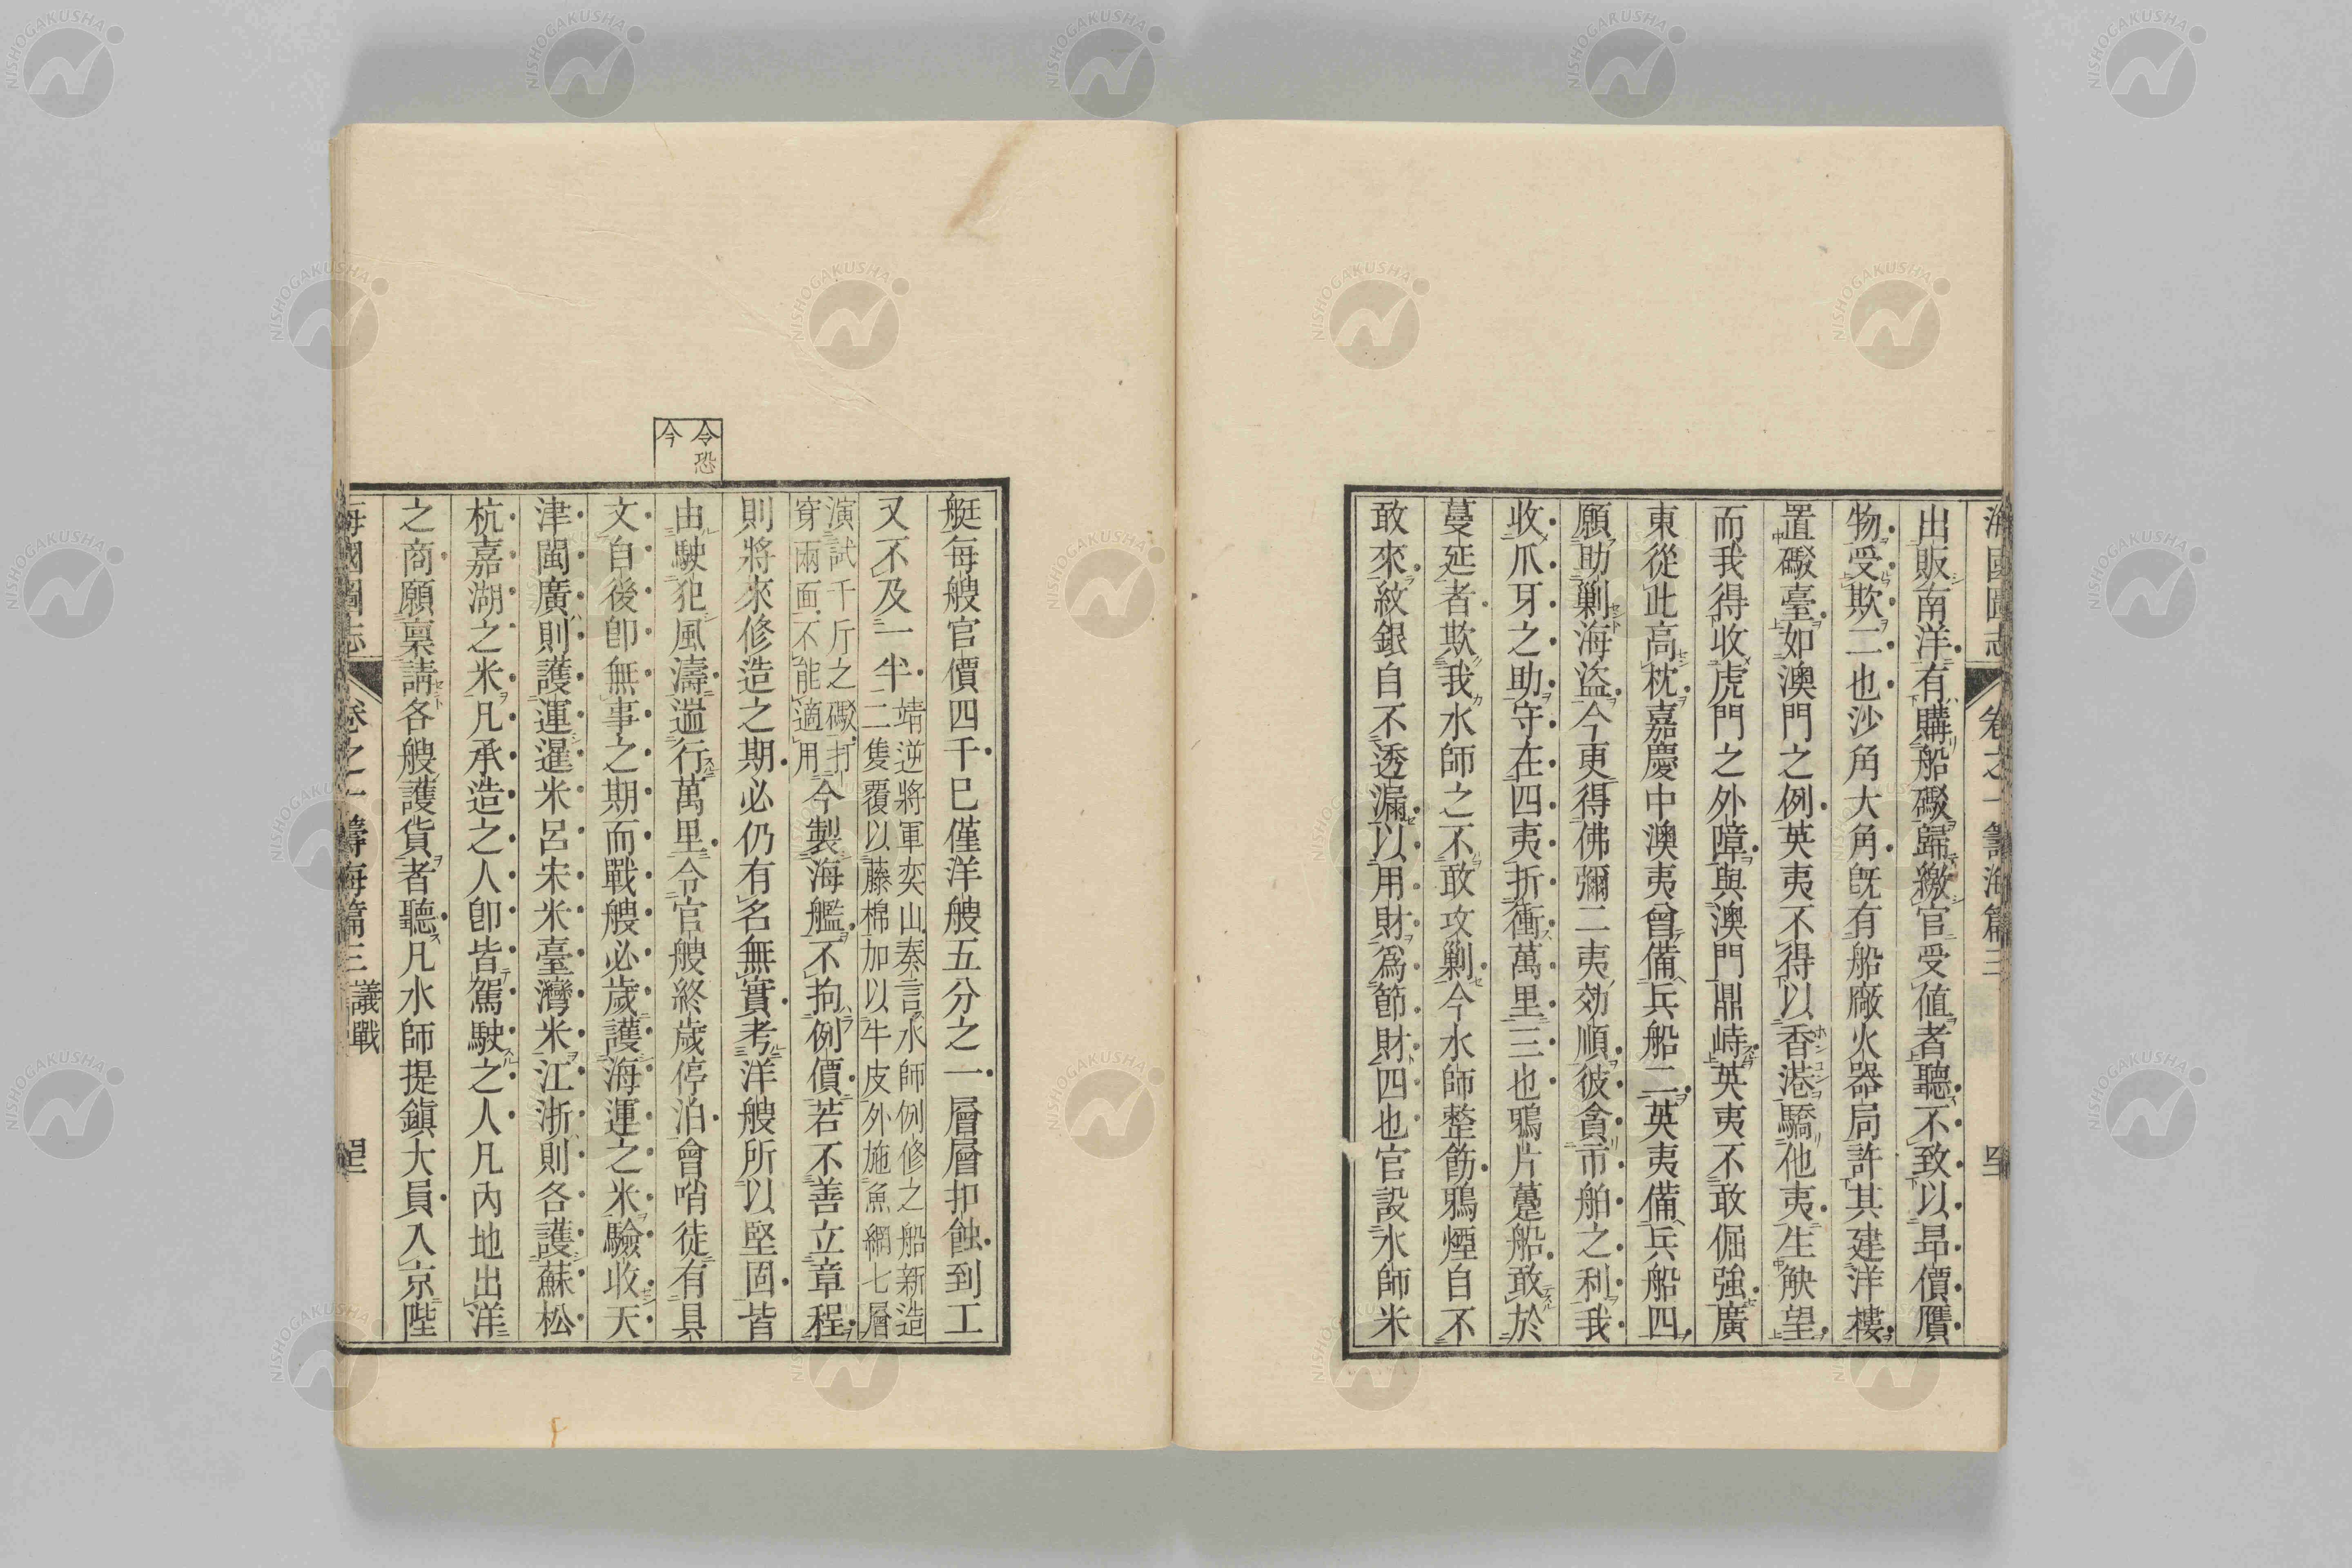 海國圖志 卷之一 籌海篇三
出販南洋有購船礮歸繳官受値者聽不致以昻價贋
物受欺二也沙角大角旣有船廠火器局許其建洋樓
置礮臺如澳門之例英夷不得以香港驕他夷生觖望
而我得收虎門之外障與澳門鼎峙英夷不敢倔強廣
東從此高枕嘉慶中澳夷曾備兵船二英夷備兵船四
願助剿海盜今更得佛彌二夷効順彼貪市舶之利我
收爪牙之助守在四夷折衝萬里三也鴉片躉船敢於
蔓延者欺我水師之不敢攻剿今水師整飭鴉煙自不
敢來紋銀自不透漏以用財爲節財四也官設水師米
艇每艘官價四千巳僅洋艘五分之一層層扣蝕到工
又不及一半靖逆將軍奕山奏言水師例修之船新造
二隻覆以藤棉加以牛皮外施魚網七層
演試千斤之礮打
穿兩面不能適用今製海艦不拘例價若不善立章程
則將來修造之期必仍有名無實考洋艘所以堅固皆
令恐
今
由駛犯風濤遄行萬里令官艘終歲停泊會哨徒有具
文自後卽無事之期而戰艘必歲護海運之米驗收天
津閩廣則護運暹米呂宋米臺灣米江浙則各護蘇松
杭嘉湖之米凡承造之人卽皆駕駛之人凡內地出洋
之商願稟請各艘護貨者聽凡水師提鎭大員入京陛
海國圖志 卷之一 籌海篇三 議戰
NISHOGAKUSHA